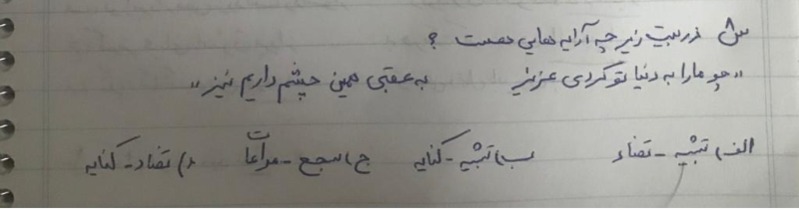 س ۸ در بیت زیر چه آرایه هایی هست ؟
« چو ما را به دنیا تو کردی عزیز به عقبی همین چشم داریم نیز »
الف) تشبیه - تضاد ب) تشبیه - کنایه ج) سجع - مراعات د) تضاد - کنایه